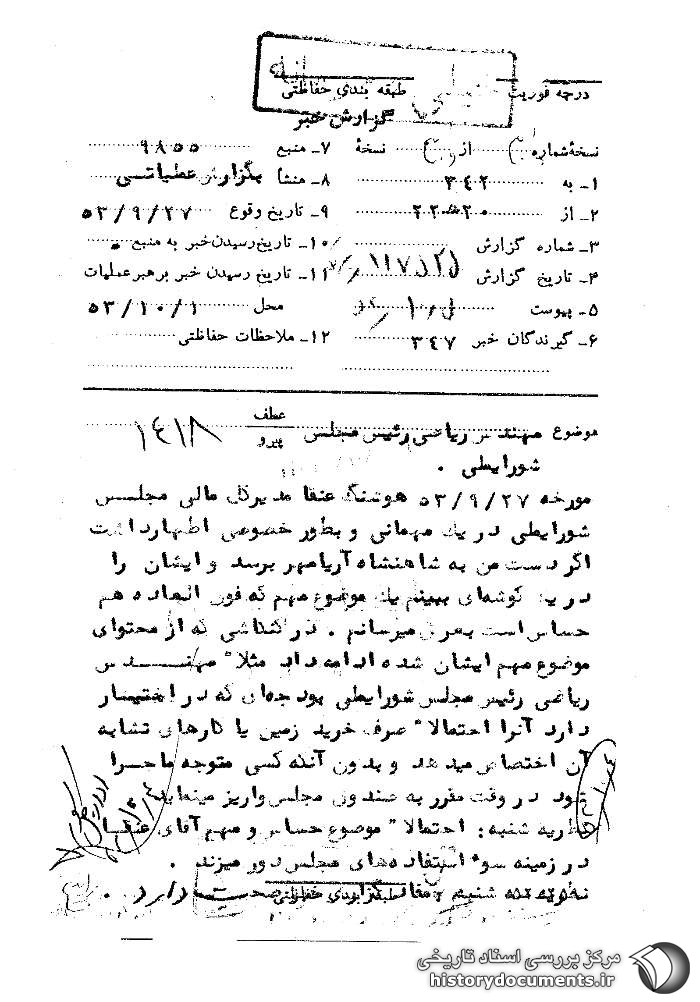 درجه فوریت
طبقه بندی حفاظتی
گزارش خبر
نسخهٔ شماره از نسخهٔ
۱ـ به ۳۴۲
۲ـ از ۲۰ه۲۲
۳ـ شماره گزارش
۴ـ تاریخ گزارش
۵ـ پیوست
۶ـ گیرندگان خبر ۳۴۷
۷ـ منبع ۹۸۵۵
۸ـ منشأ بگزارش عطیاتی
۹ـ تاریخ وقوع ۵۳/۹/۲۷
۱۰ـ تاریخ رسیدن خبر به منبع
۱۱ـ تاریخ رسیدن خبر برهبر عملیات
محل ۵۳/۱۰/۱
۱۲ـ ملاحظات حفاظتی
موضوع مهندس ریاضی رئیس مجلس عطف پیرو ۱۴۱۸
شورایملی .
مورخه ۵۳/۹/۲۷ هوشنگ عنقا مدیرکل مالی مجلس
شورایملی در یك مهمانی و بطور خصوصی اظهار داشت
اگر دست من به شاهنشاه آریامهر برسد و ایشان را
در یك گوشه‌ای ببینم یك موضوع مهم که فوق العاده هم
حساس است بعرض میرسانم . در کنکاشی که از محتوای
موضوع مهم ایشان شده ادامه داد مثلا" مهندس
ریاضی رئیس مجلس شورایملی بودجه‌ای که در اختیار
دارد آنرا احتمالا" صرف خرید زمین یا کارهای تشابه
آن اختصاص میدهد و بدون آنکه کسی متوجه ماجرا
شود در وقت مقرر به صندوق مجلس واریز مینماید
نظریه شنبه : احتمالا" موضوع حساس و مهم آقای عنقا
در زمینه سوء استفاده‌های مجلس دور میزند .
نظریه شنبه گزارش صحت دارد .
طبقه بندی حفاظتی
مرکز بررسی اسناد تاریخی
historydocuments.ir